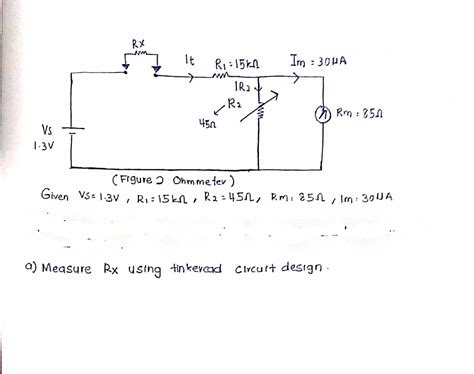 Rx
It
R1 = 15kΩ
Im = 30μA
IR2
R2
45Ω
Rm = 85Ω
Vs
1.3V
(Figure 2 Ohmmeter)
Given Vs= 1.3V , R1 = 15kΩ , R2 = 45Ω, Rm = 85Ω , Im = 30μA
a) Measure Rx using tinkercad circuit design.